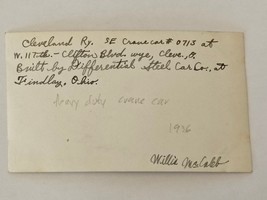 Cleveland Ry. SE Crane car # 0713 at
W. 117th. - Clifton Blvd wye, Cleve., O.
Built by Differential Steel Car Co., at
Findlay, Ohio.
heavy duty crane car
1936
Willis McCaleb